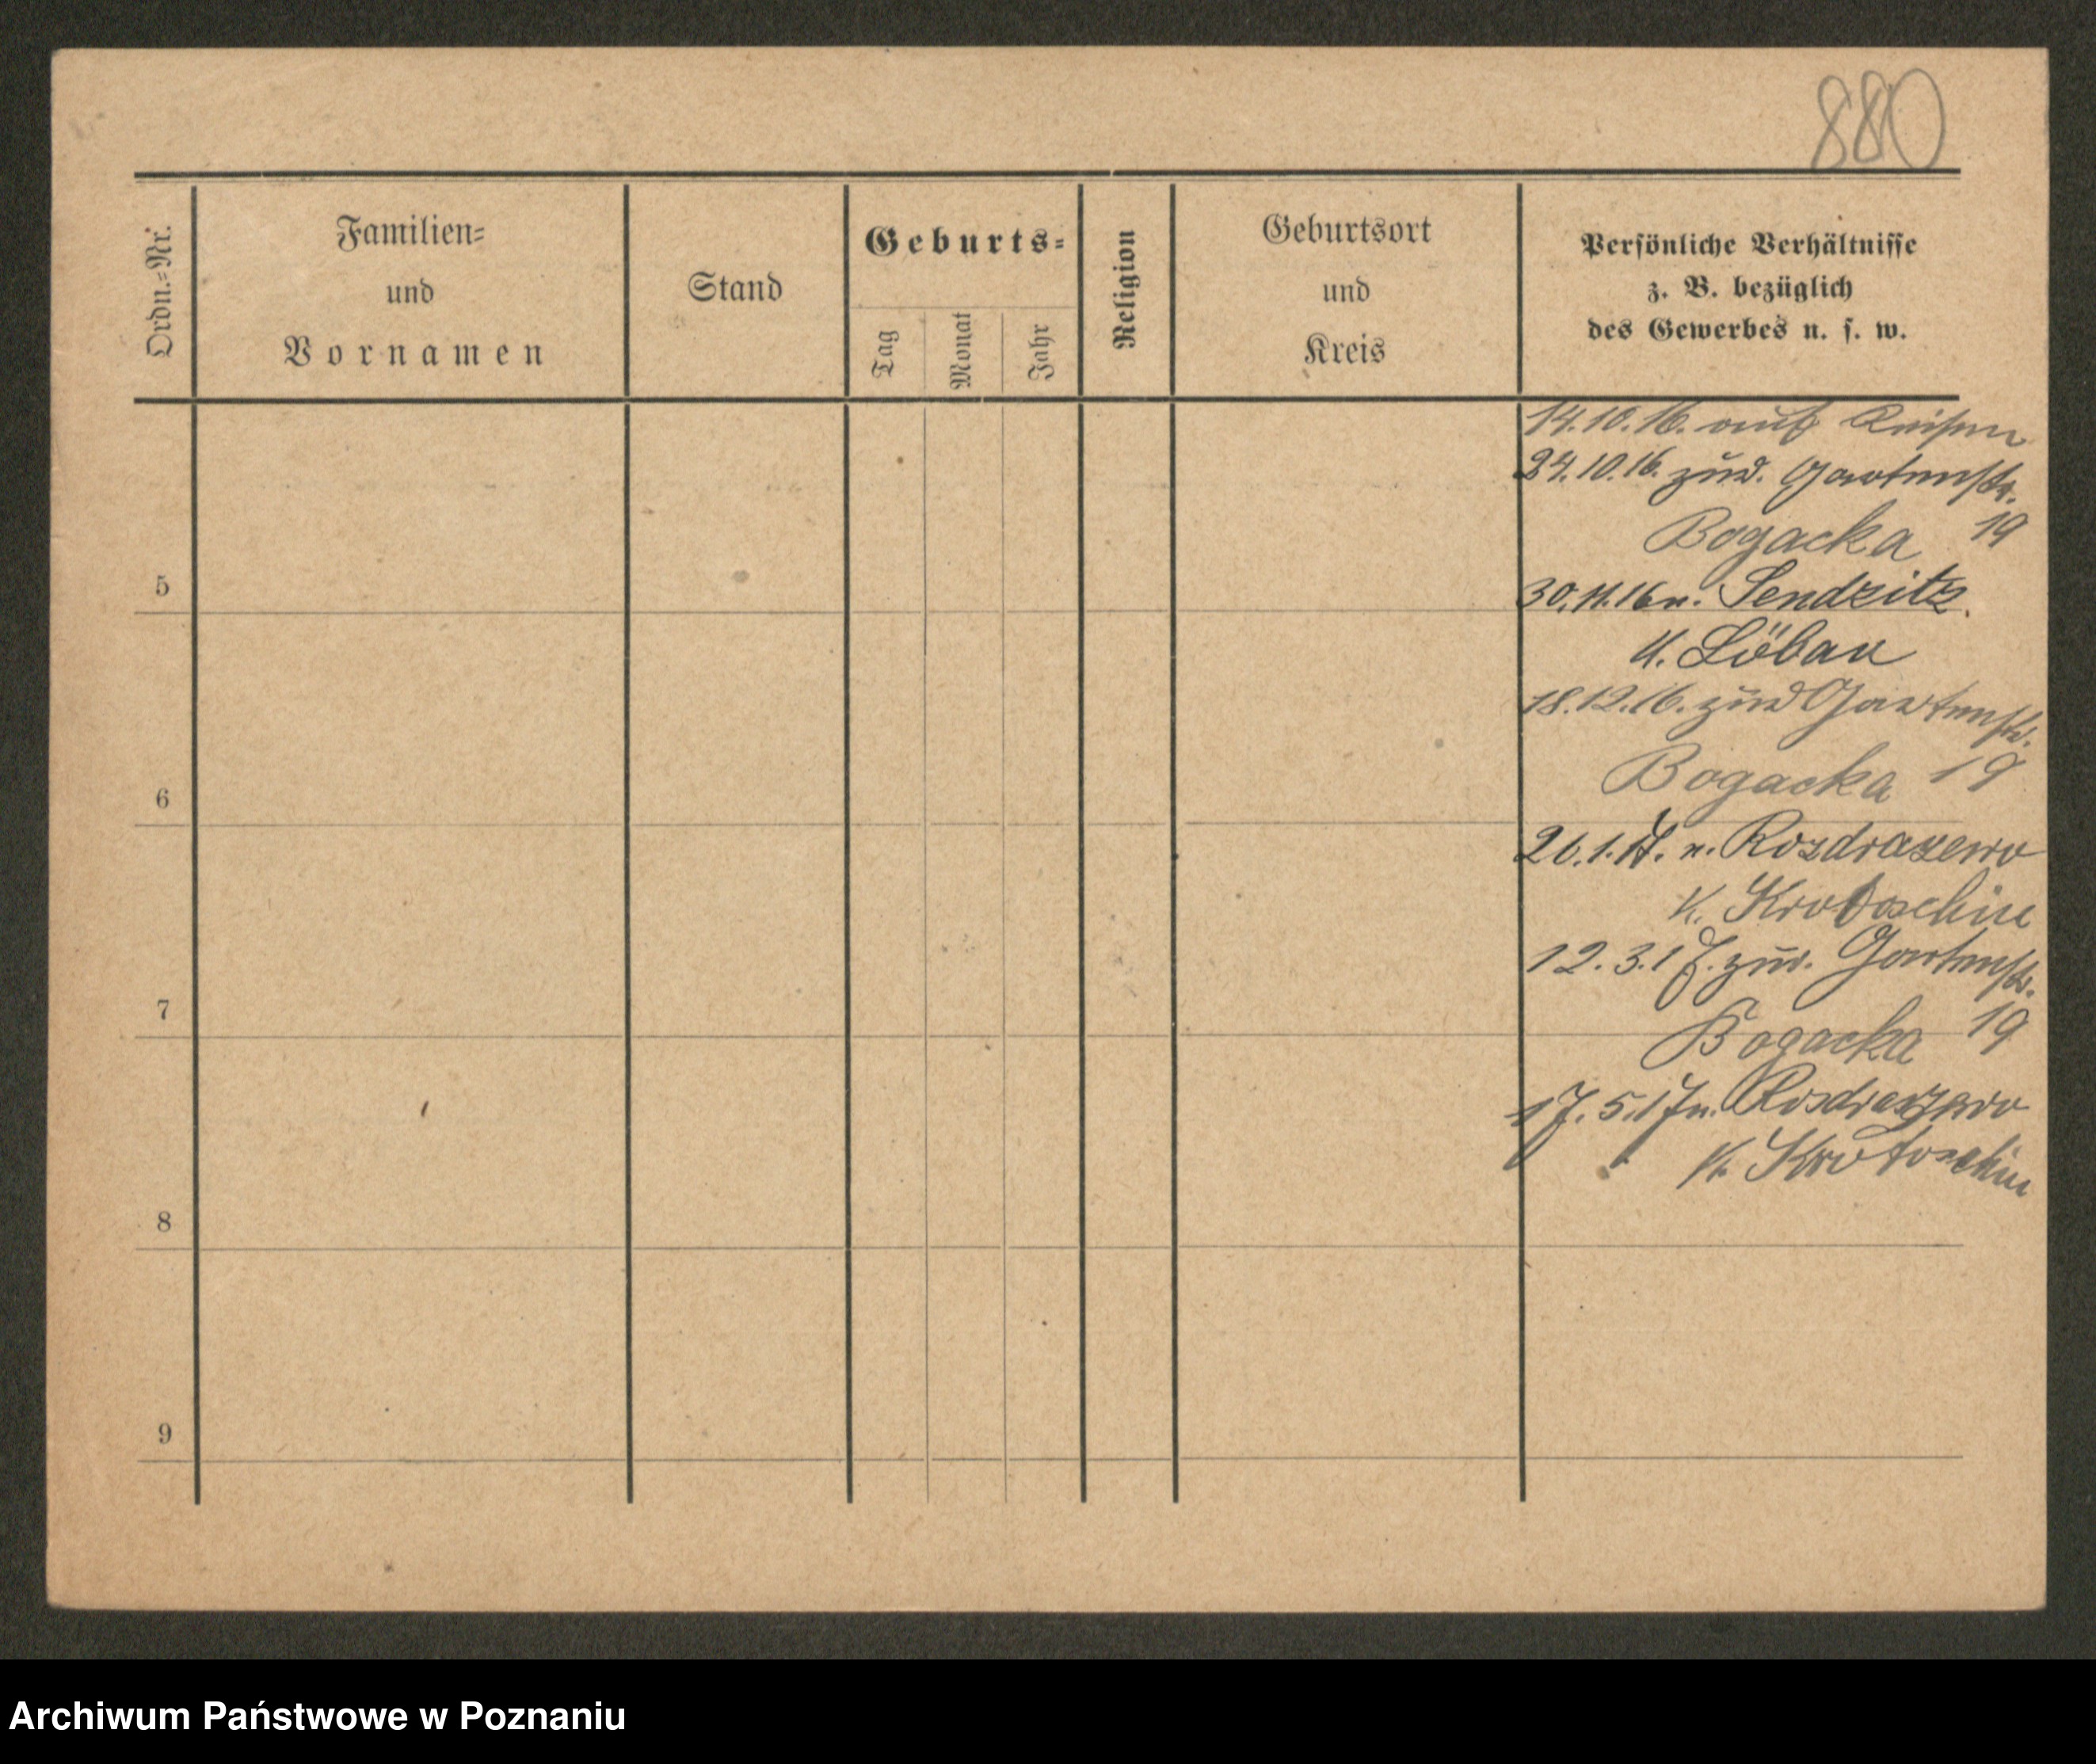 880
Ordn.=Nr.
Familien=
und
Vornamen
Stand
Geburts=
Tag
Monat
Jahr
Religion
Geburtsort
und
Kreis
Persönliche Verhältnisse
z. B. bezüglich
des Gewerbes u. s. w.
14.10.16. auf Reisen
24.10.16. zur. Gartenstr.
Bogacka 19
5
30.11.16 n. Sendzitz.
K. Löbau
18.12.16. zur Gartenstr.
Bogacka 19
6
26.1.17. n. Rozdrazewo
K. Krotoschin
12.3.17. zur. Gartenstr.
7
Bogacka 19
17.5.17 n. Rosdrazewo
K. Krotoschin
8
9
Archiwum Państwowe w Poznaniu